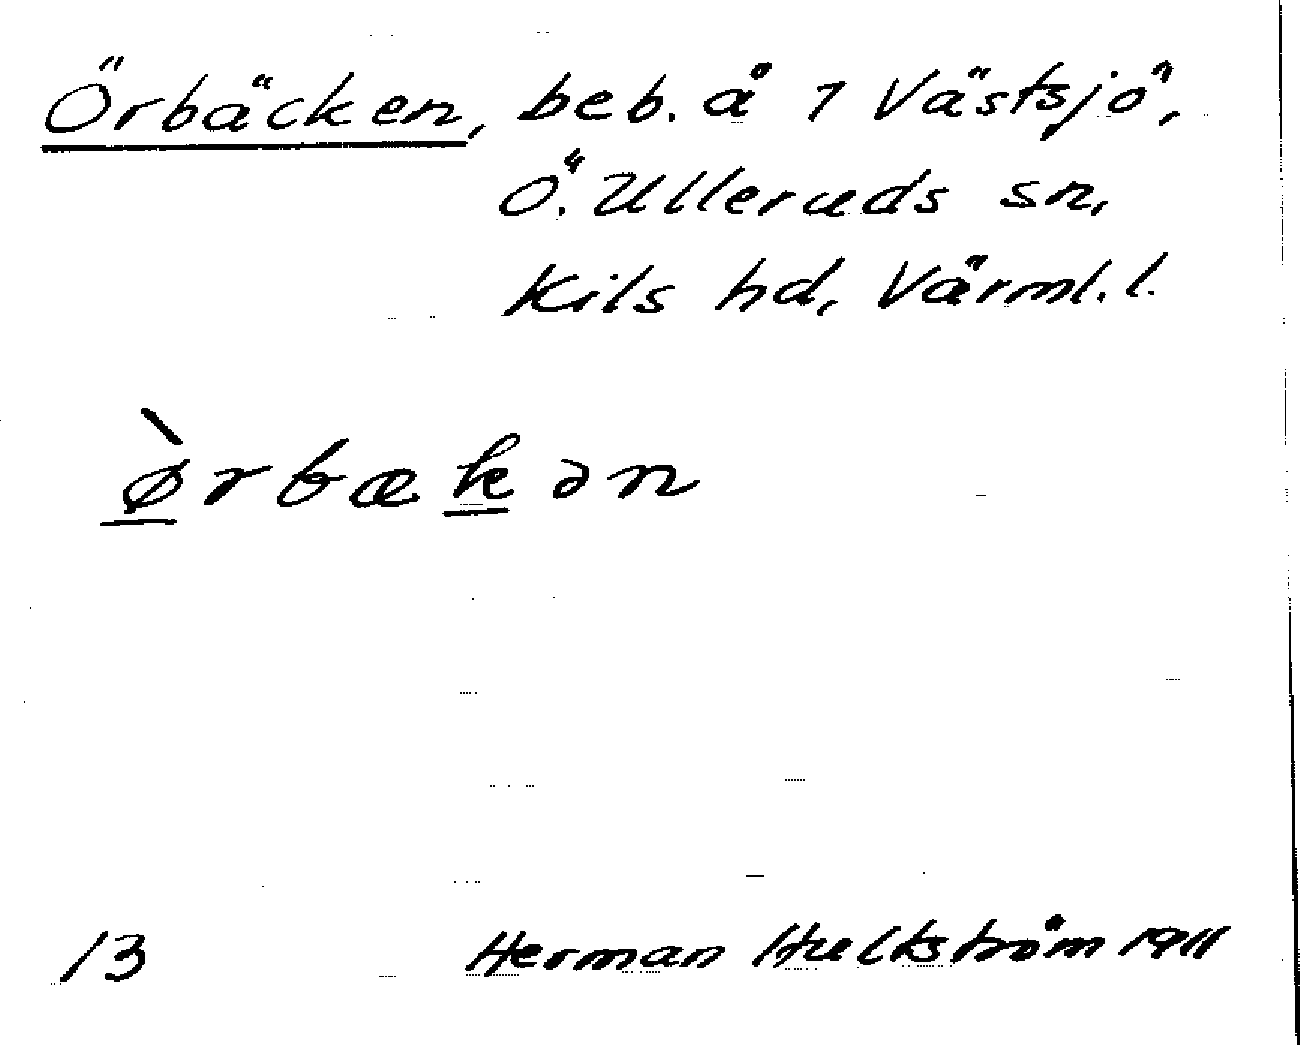 Örbäcken, beb. å 1 Västsjö,
Ö. Ulleruds sn,
Kils hd, Värml. l.
ø̀rbækən
13 Herman Hultström 1911